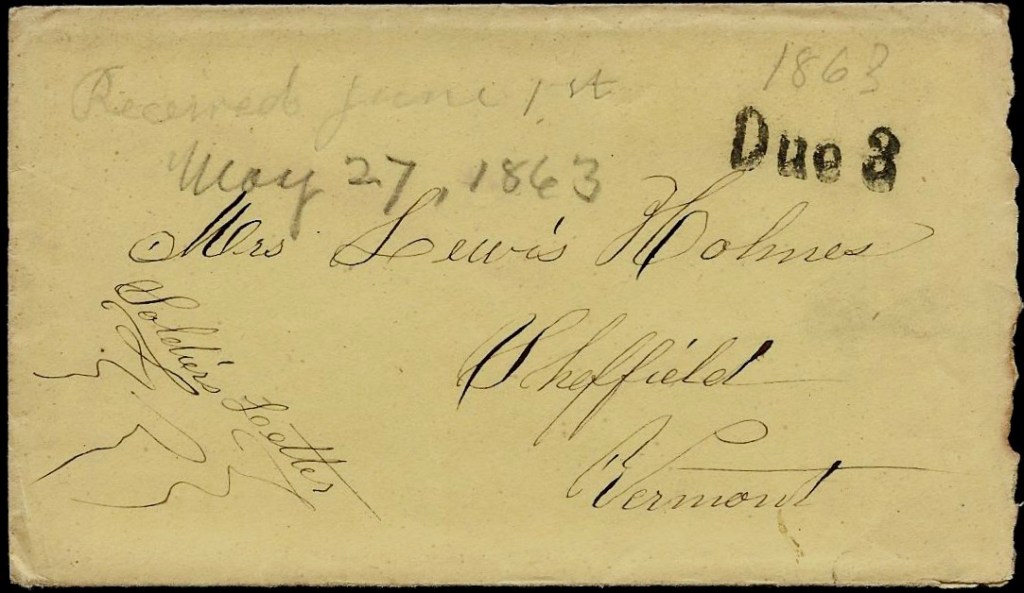 1863
Received June 1st
Due 3
May 27, 1863
Mrs Lewis Holmes
Soldiers Letter
Sheffield
Vermont